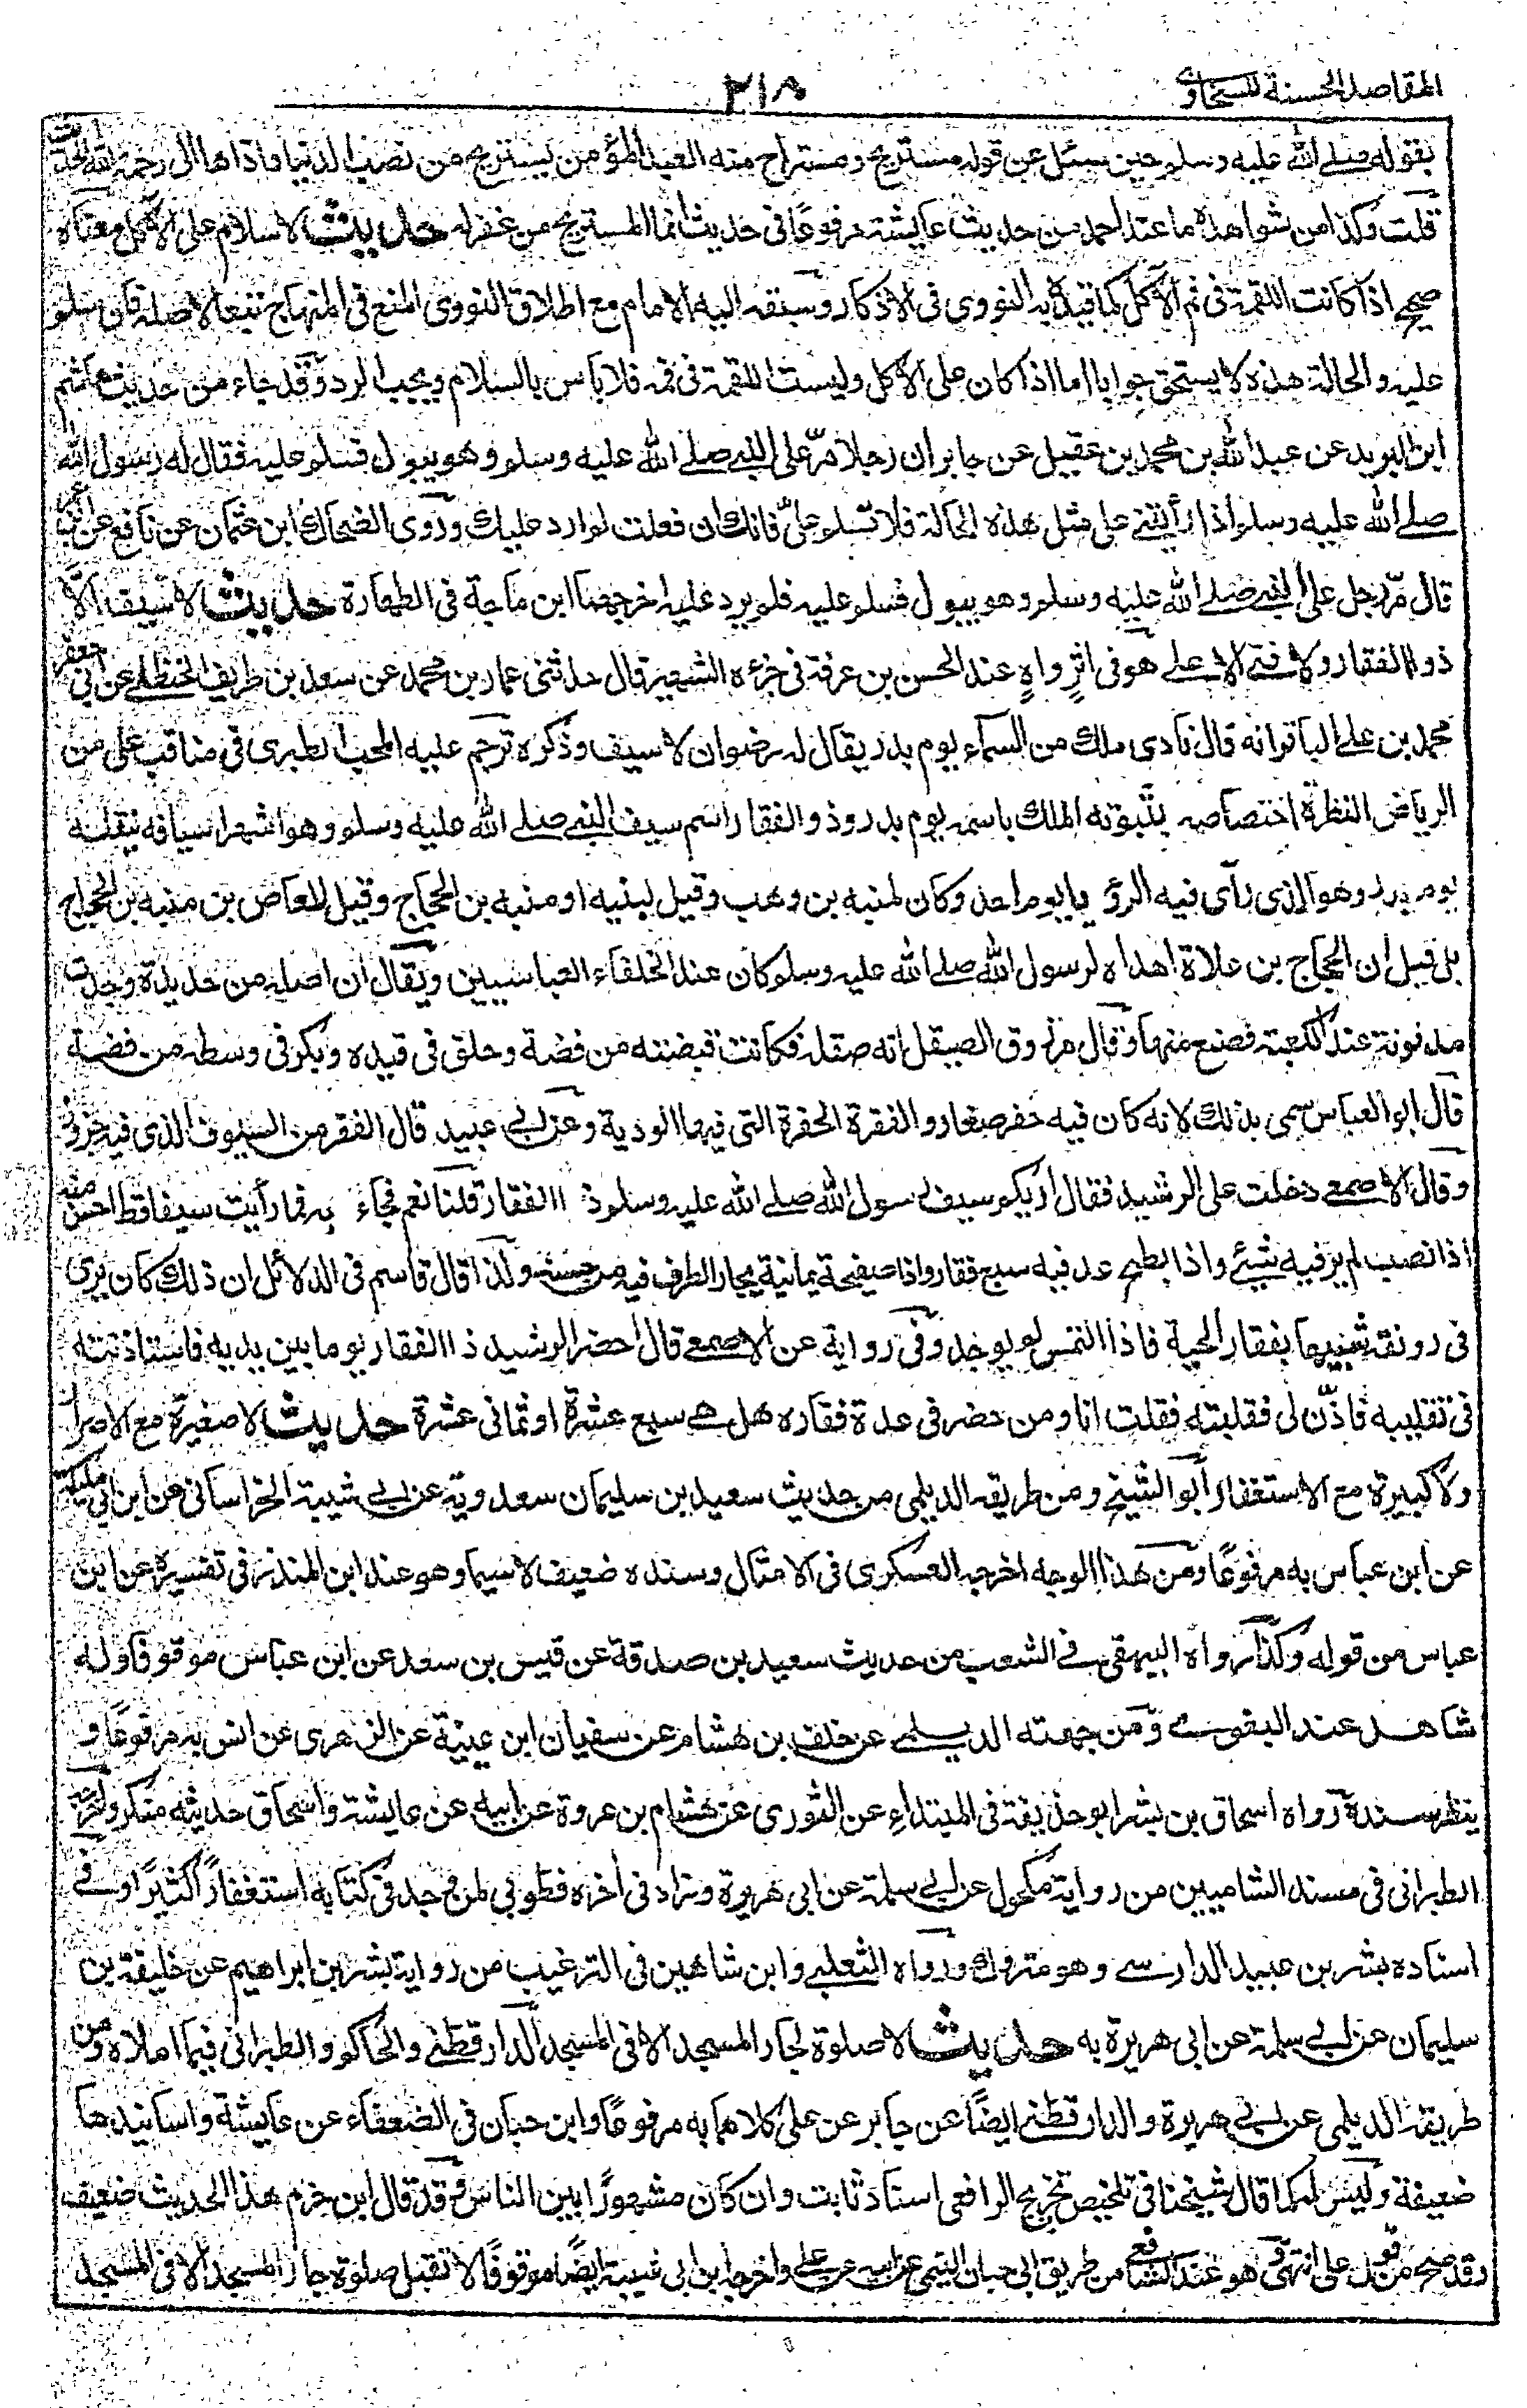 المقاصد الحسنة للسخاوى
٢١٨
بقوله صلے الله عليه وسلم حين سئل عن قوله مستريح ومستراح منه العبد المؤمن يستريح من نصب الدنيا واذاها الى رحمة الله الحديث
قلت وكذا من شواهده ما عند احمد من حديث عايشة مرفوعًا فى حديث انما المستريح من غفر له حديث لا سلام على الآكل معناه
صحيح اذا كانت اللقمة فى فم الآكل كما قيده به النووى فى الاذكار وسبقه اليه الامام مع اطلاق النووى المنع فى المنهاج تبعا لاصله فان سلم
عليه والحالة هذه لا يستحق جوابا اما اذا كان على الاكل وليست اللقمة فى فمه فلا باس بالسلام ويجب الرد وقد جاء من حديث هاشم
ابن البريد عن عبد الله بن محمد بن عقيل عن جابر ان رجلا مرّ على النبى صلے الله عليه وسلم وهو يبول فسلم عليه فقال له رسول الله
صلے الله عليه وسلم اذا رأيتنى على مثل هذه الحالة فلا تسلم علىّ فانك ان فعلت لم ارد عليك وروى الضحاك ابن عثمان عن نافع عن ابن عمر
قال مرّ رجل على النبى صلے الله عليه وسلم وهو يبول فسلم عليه فلم يرد عليه اخرجهما ابن ماجة فى الطهارة حديث لا سيف الا
ذو الفقار ولا فتى الا على هو فى اثرٍ واهٍ عند الحسن بن عرفة فى جزءه الشهير قال حدثنى عمار بن محمد عن سعد بن طريف الحنظلى عن ابى جعفر
محمد بن على الباقر انه قال نادى ملك من السماء يوم بدر يقال له رضوان لا سيف وذكره ترجم عليه المحب الطبرى فى مناقب على من
الرياض النظرة اختصاصه بتنويه الملك باسمه يوم بدر وذو الفقار اسم سيف النبى صلے الله عليه وسلم وهو اشهر اسيافه تنفله
يوم بدر وهو الذى رأى فيه الرؤ يا يوم احد وكان لمنبه بن وهب وقيل لنبيه او منبه بن الحجاج وقيل للعاص بن منبه بن الحجاج
بل قيل ان الحجاج بن علاة اهداه لرسول الله صلے الله عليه وسلم وكان عند الخلفاء العباسيين ويقال ان اصله من حديدة وجدت
مدفونة عند الكعبة فصنع منها وقال مرزوق الصيقل انه صقله فكانت قبضته من فضة وحلق فى قيده وبكر فى وسطه من فضة
قال ابو العباس سمى بذلك لانه كان فيه حفر صغار والفقرة الحفرة التى فيها الودية وعن ابى عبيد قال الفقر من السيوف الذى فيه حزوز
وقال الاصمعى دخلت على الرشيد فقال اريكم سيف رسول الله صلے الله عليه وسلم ذ االفقار قلنا نعم فجاء به فما رأيت سيفا قط احسن منه
اذا نصب لم ير فيه شئ واذا بطح عد فيه سبع فقار واذا صفيحة يمانية يحار الطرف فيه من حسنه ولذا قال قاسم فى الدلائل ان ذلك كان يرى
فى رونقه شبيها بفقار الحية فاذا التمس لم يوجد وفى رواية عن الاصمعى قال احضر الرشيد ذا الفقار يوما بين يديه فاستاذنته
فى تقليبه فاذّن لى فقلبته فقلت انا ومن حضر فى عدة فقاره هل هى سبع عشرة او ثمانى عشرة حديث لا صغيرة مع الاصرار
ولا كبيرة مع الاستغفار ابو الشيخ ومن طريقه الديلمى من حديث سعيد بن سليمان سعدوية عن ابى شيبة الخراسانى عن ابن ابى مليكة
عن ابن عباس به مرفوعًا ومن هذا الوجه اخرجه العسكرى فى الامثال وسنده ضعيف لا سيما وهو عند ابن المنذر فى تفسيره عن ابن
عباس من قوله وكذا رواه البيهقى فى الشعب من حديث سعيد بن صدقة عن قيس بن سعد عن ابن عباس موقوفا وله
شاهد عند البغوى ومن جهته الديلمى عن خلف بن هشام عن سفيان ابن عيينة عن الزهرى عن انس به مرفوعًا و
ينظر سنده ورواه اسحاق بن بشر ابو حذيفة فى المبتداء عن الثورى عن هشام بن عروة عن ابيه عن عايشة واسحاق حديثه منكر واخرجه
الطبرانى فى مسند الشاميين من رواية مكحول عن ابى سلمة عن ابى هريرة وزاد فى اخره فطوبى لمن وجد فى كتابه استغفارًا كثيرًا وفى
اسناده بشر بن عبيد الدارسى وهو متروك ورواه الثعلبى وابن شاهين فى الترغيب من رواية بشر بن ابراهيم عن خليفة بن
سليمان عن ابى سلمة عن ابى هريرة به حديث لا صلوة لجار المسجد الا فى المسجد الدارقطنى والحاكم والطبرانى فيما املاه ومن
طريقه الديلمى عن ابى هريرة والدارقطنى ايضًا عن جابر عن على كلاهما به مرفوعًا وابن حبان فى الضعفاء عن عايشة واسانيدها
ضعيفة وليس له كما قال شيخنا فى تلخيص تخريج الرافعى اسناد ثابت وان كان مشهورًا بين الناس وقد قال ابن حزم هذا الحديث ضعيف
وقد صح من قول على انتهى وهو عند الشافعى من طريق ابى حبان التيمى عن ابيه عن على واخرجه ابن ابى شيبة ايضًا موقوفًا لا تقبل صلوة جار المسجد الا فى المسجد